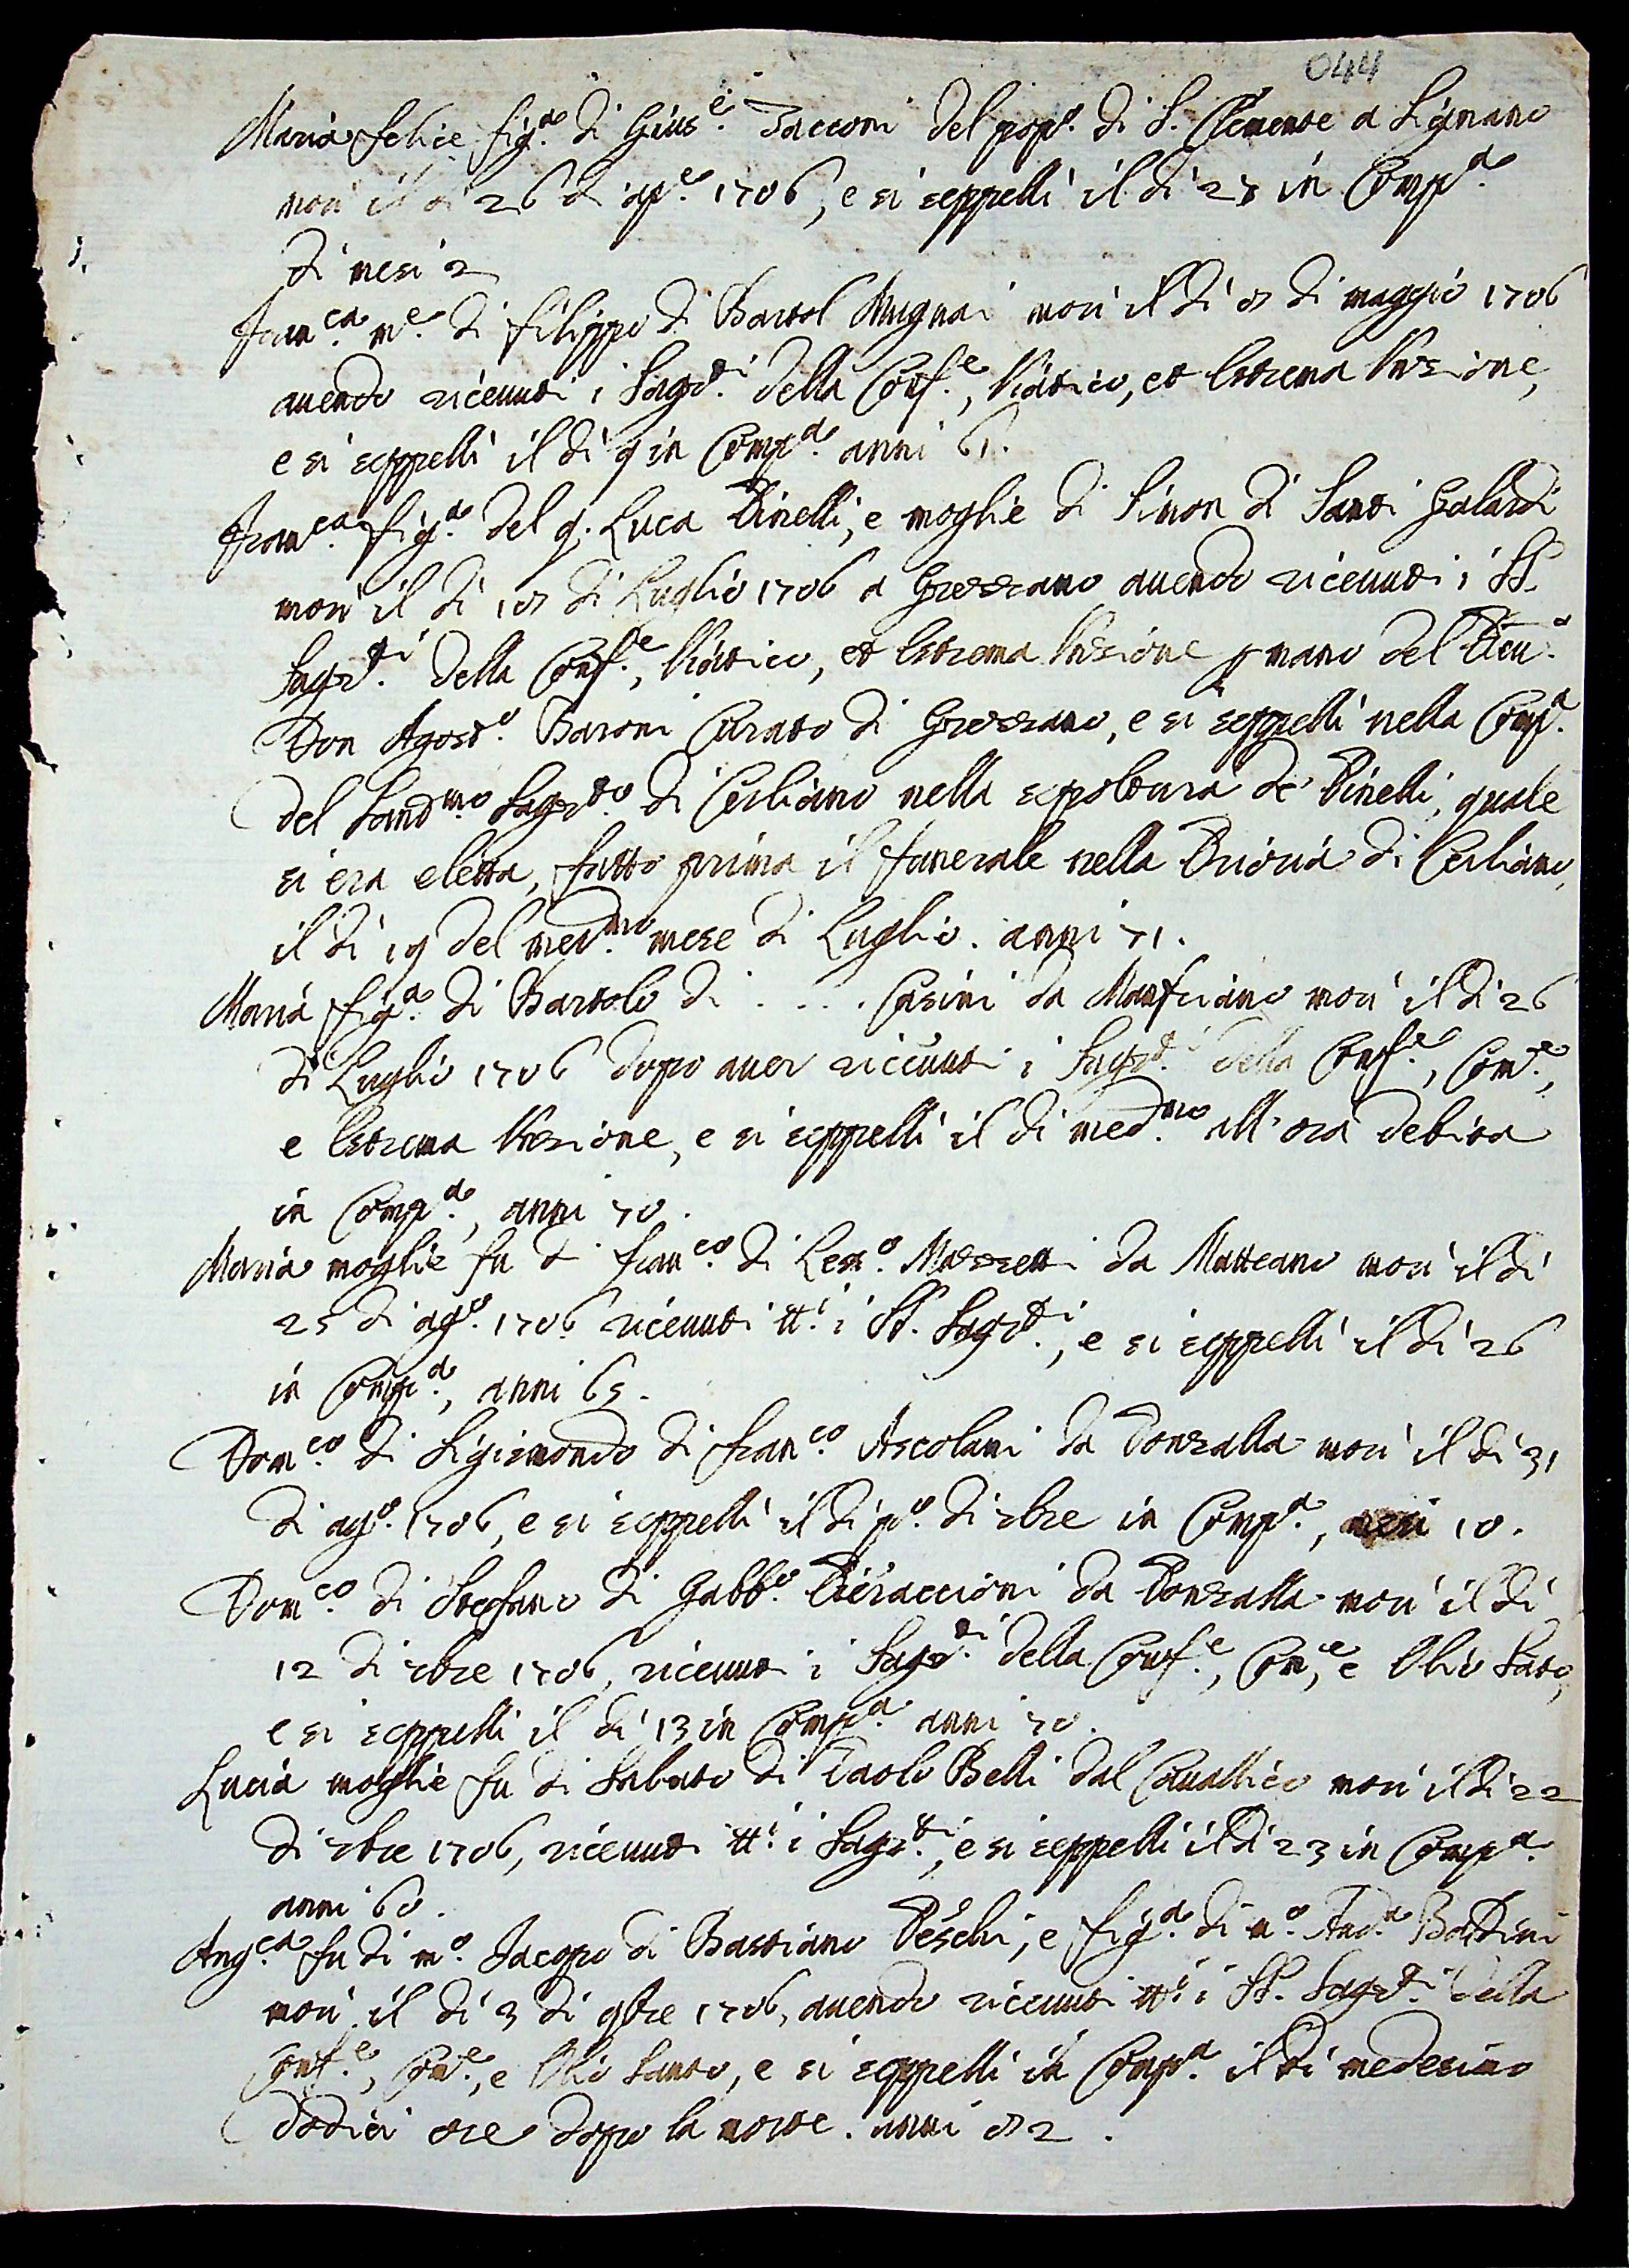 044
Maria Felice fig.a di Gius.e Tacconi del pop.o di S. Clemente a Signano
morì il dì 26 di ap.e 1706, e si seppellì il dì 27 in Comp.a
di mesi 2
Fran.ca m.e di Filippo di Bartol Mugnai morì il dì 8 di maggio 1706
auendo riceuuti i Sagr.ti della Conf.e, Viatico, et Estrema Unzione,
e si seppellì il dì 9 in Comp.a anni 61.
Fran.ca fig.a del q. Luca Pinelli, e moglie di Simon di Santi Galardi
morì il dì 18 di Luglio 1706 a Grezzano auendo riceuuti i SS.
Sagr.ti della Conf.e, Viatico, et Estrema Unzione p mano del
Don Agost.o Baroni Curato di Grezzano, e si seppellì nella Comp.a
del Sant.mo Sagr.to di Cerliano nella sepoltura de' Pinelli, quale
si era eletta, fatto prima il funerale nella Prioria di Cerliano,
il dì 19 del med.mo mese di Luglio. anni 71.
Maria fig.a di Bartolo di . . . . Casini da Manfriano morì il dì 26
di Luglio 1706 dopo auer riceuuti i Sagr.ti della Conf.e, Com.e,
e Estrema Unzione, e si seppellì il dì med.mo all' ora debita
in Comp.a, anni 70.
Maria moglie fu di Fran.co di Lor.o Mazzetti da Matteano morì il dì
25 di ag.o 1706 riceuuti tt.i i SS. Sagr.ti, e si seppellì il dì 26
in Comp.a, anni 65.
Dom.co di Sigismondo di Fran.co Ascolani da Ponzalla morì il dì 31
di ag.o 1706, e si seppellì il dì p.o di 7bre in Comp.a, mesi 10.
Dom.co di Stefano di Gabb.o Pieraccioni da Ponzalla morì il dì
12 di 7bre 1706, riceuuti i Sagr.ti della Conf.e, Com.e, e Olio Santo,
e si seppellì il dì 13 in Comp.a anni 70.
Lucia moglie fu di Sabato di Paolo Belli dal Cauallico morì il dì 22
di 7bre 1706, riceuuti tt.i i Sagr.ti, e si seppellì il dì 23 in Comp.a
anni 60.
Ang.ca fu di m.o Jacopo di Bastiano Peschi, e fig.a di m.o And.a Baldini
morì il dì 3 di 9bre 1706, auendo riceuuti tt.i i SS. Sagr.ti della
Conf.e, Com.e, e Olio Santo, e si seppellì in Comp.a il dì medesimo
dodici ore dopo la morte. anni 82.